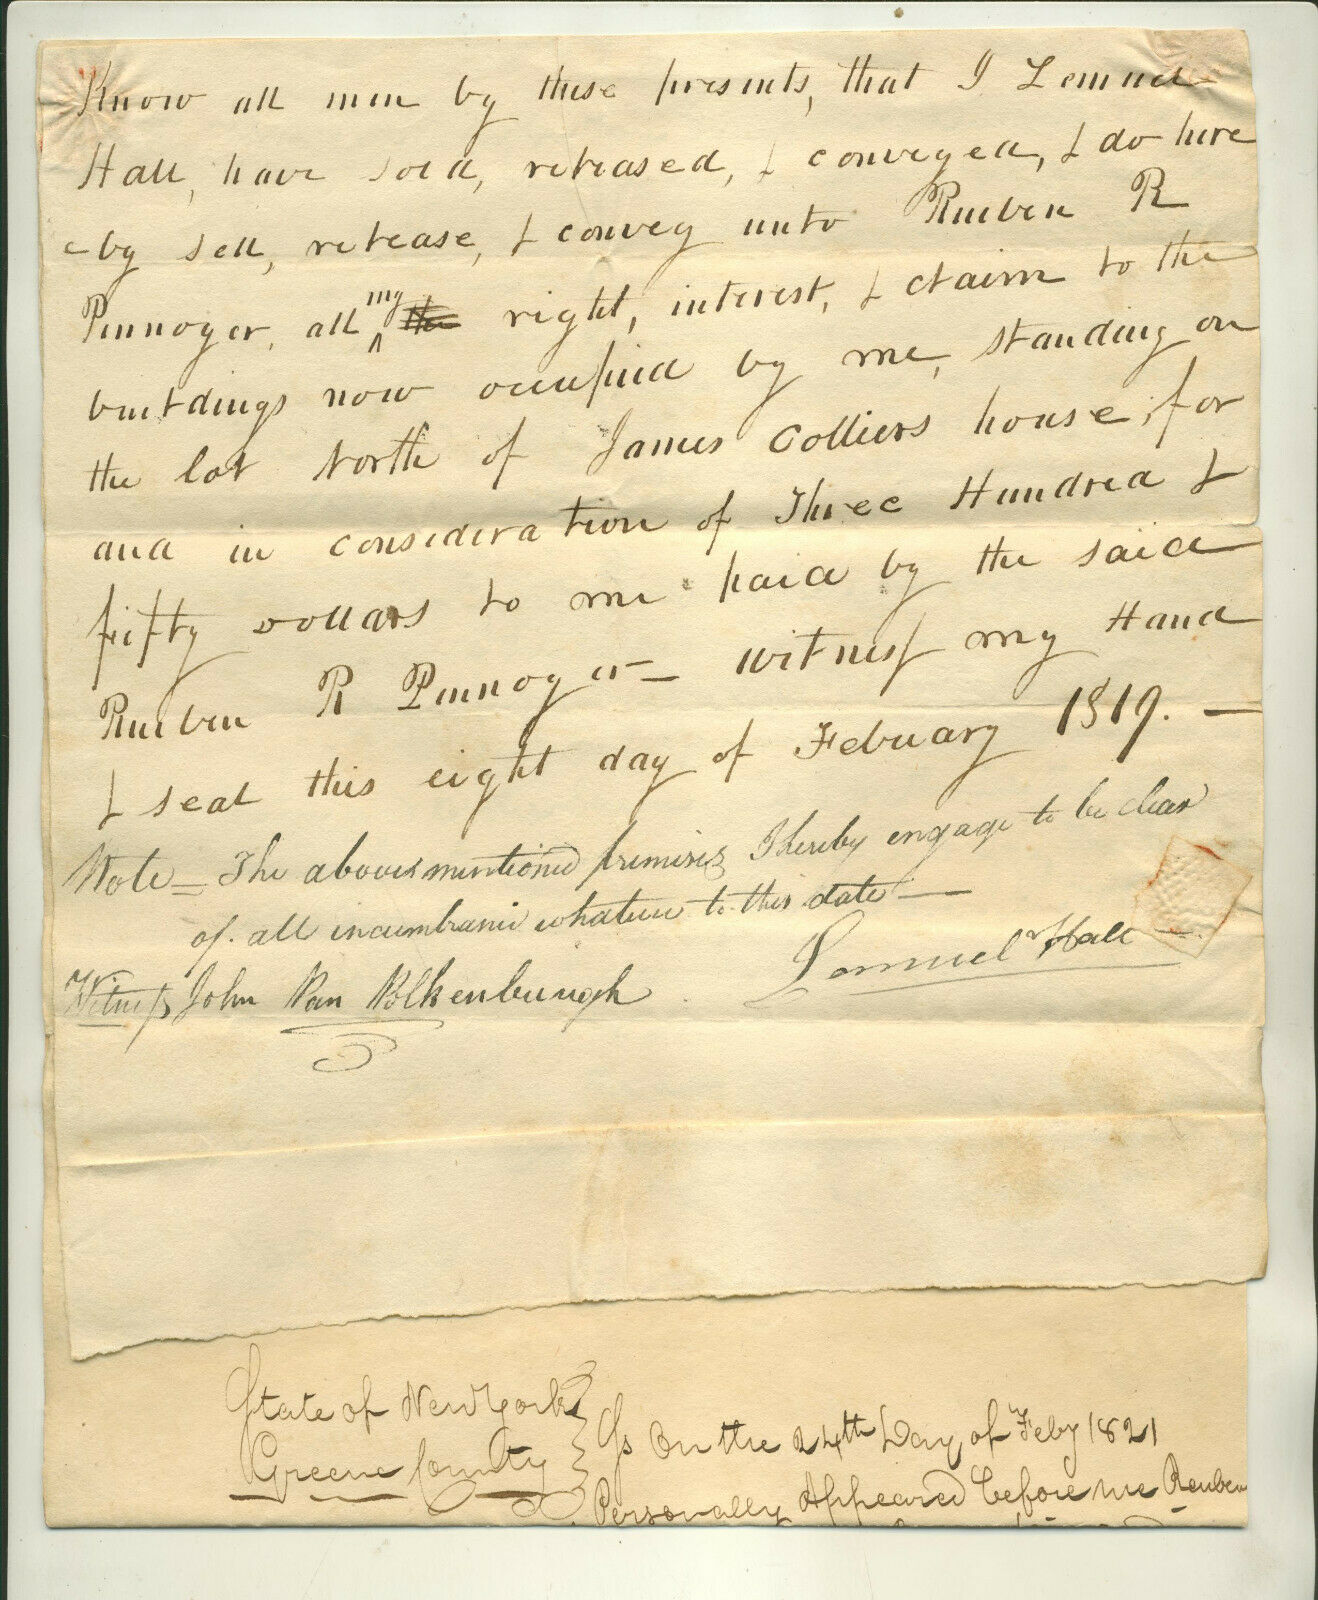 Know all men by these presents, that I Lemuel
Hall, have sold, released, & conveyed, & do here
-by sell, release, & convey unto Reuben R
Pennoyer, all my the right, interest, & claim to the
buildings now occupied by me, standing on
the lot North of James Colliers house, for
and in consideration of Three Hundred &
fifty Dollars to me paid by the said
Reuben R Pennoyer — Witness my Hand
& seal this eight day of February 1819. —
Note = The above mentioned premises I hereby engage to be clear
of all incumbrance whatever to this date —
Lemuel Hall
Witness John Van Volkenburugh
State of New York
Greene County } Ss On the 24th Day of Feby 1821
Personally Appeared before me Reuben